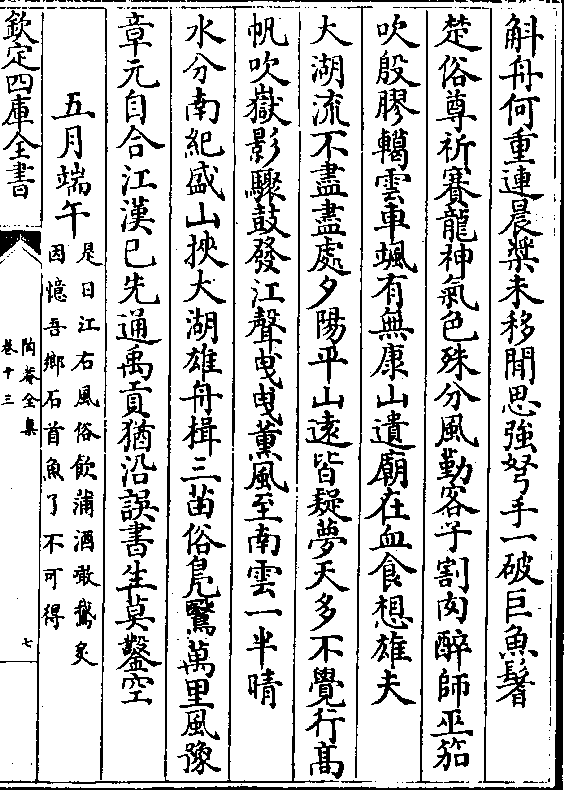 斛舟何重連晨槳未移聞思強弩手一破巨魚鬐
楚俗尊祈賽龍神氣色殊分風勤客子割肉醉師巫笳
吹殷膠轕雲車颯有無康山遺廟在血食想雄夫
大湖流不盡盡處夕陽平山遠皆疑夢天多不覺行髙
帆吹嶽影驟鼓發江聲曳曳薰風至南雲一半晴
水分南紀盛山挾大湖雄舟楫三苗俗鳬鷖萬里風豫
章元自合江漢已先通禹貢猶沿誤書生莫鑿空
五月端午
是日江右風俗飲蒲酒噉鵞炙
因憶吾鄉石首魚了不可得
欽定四庫全書
陶菴全集
卷十三
七